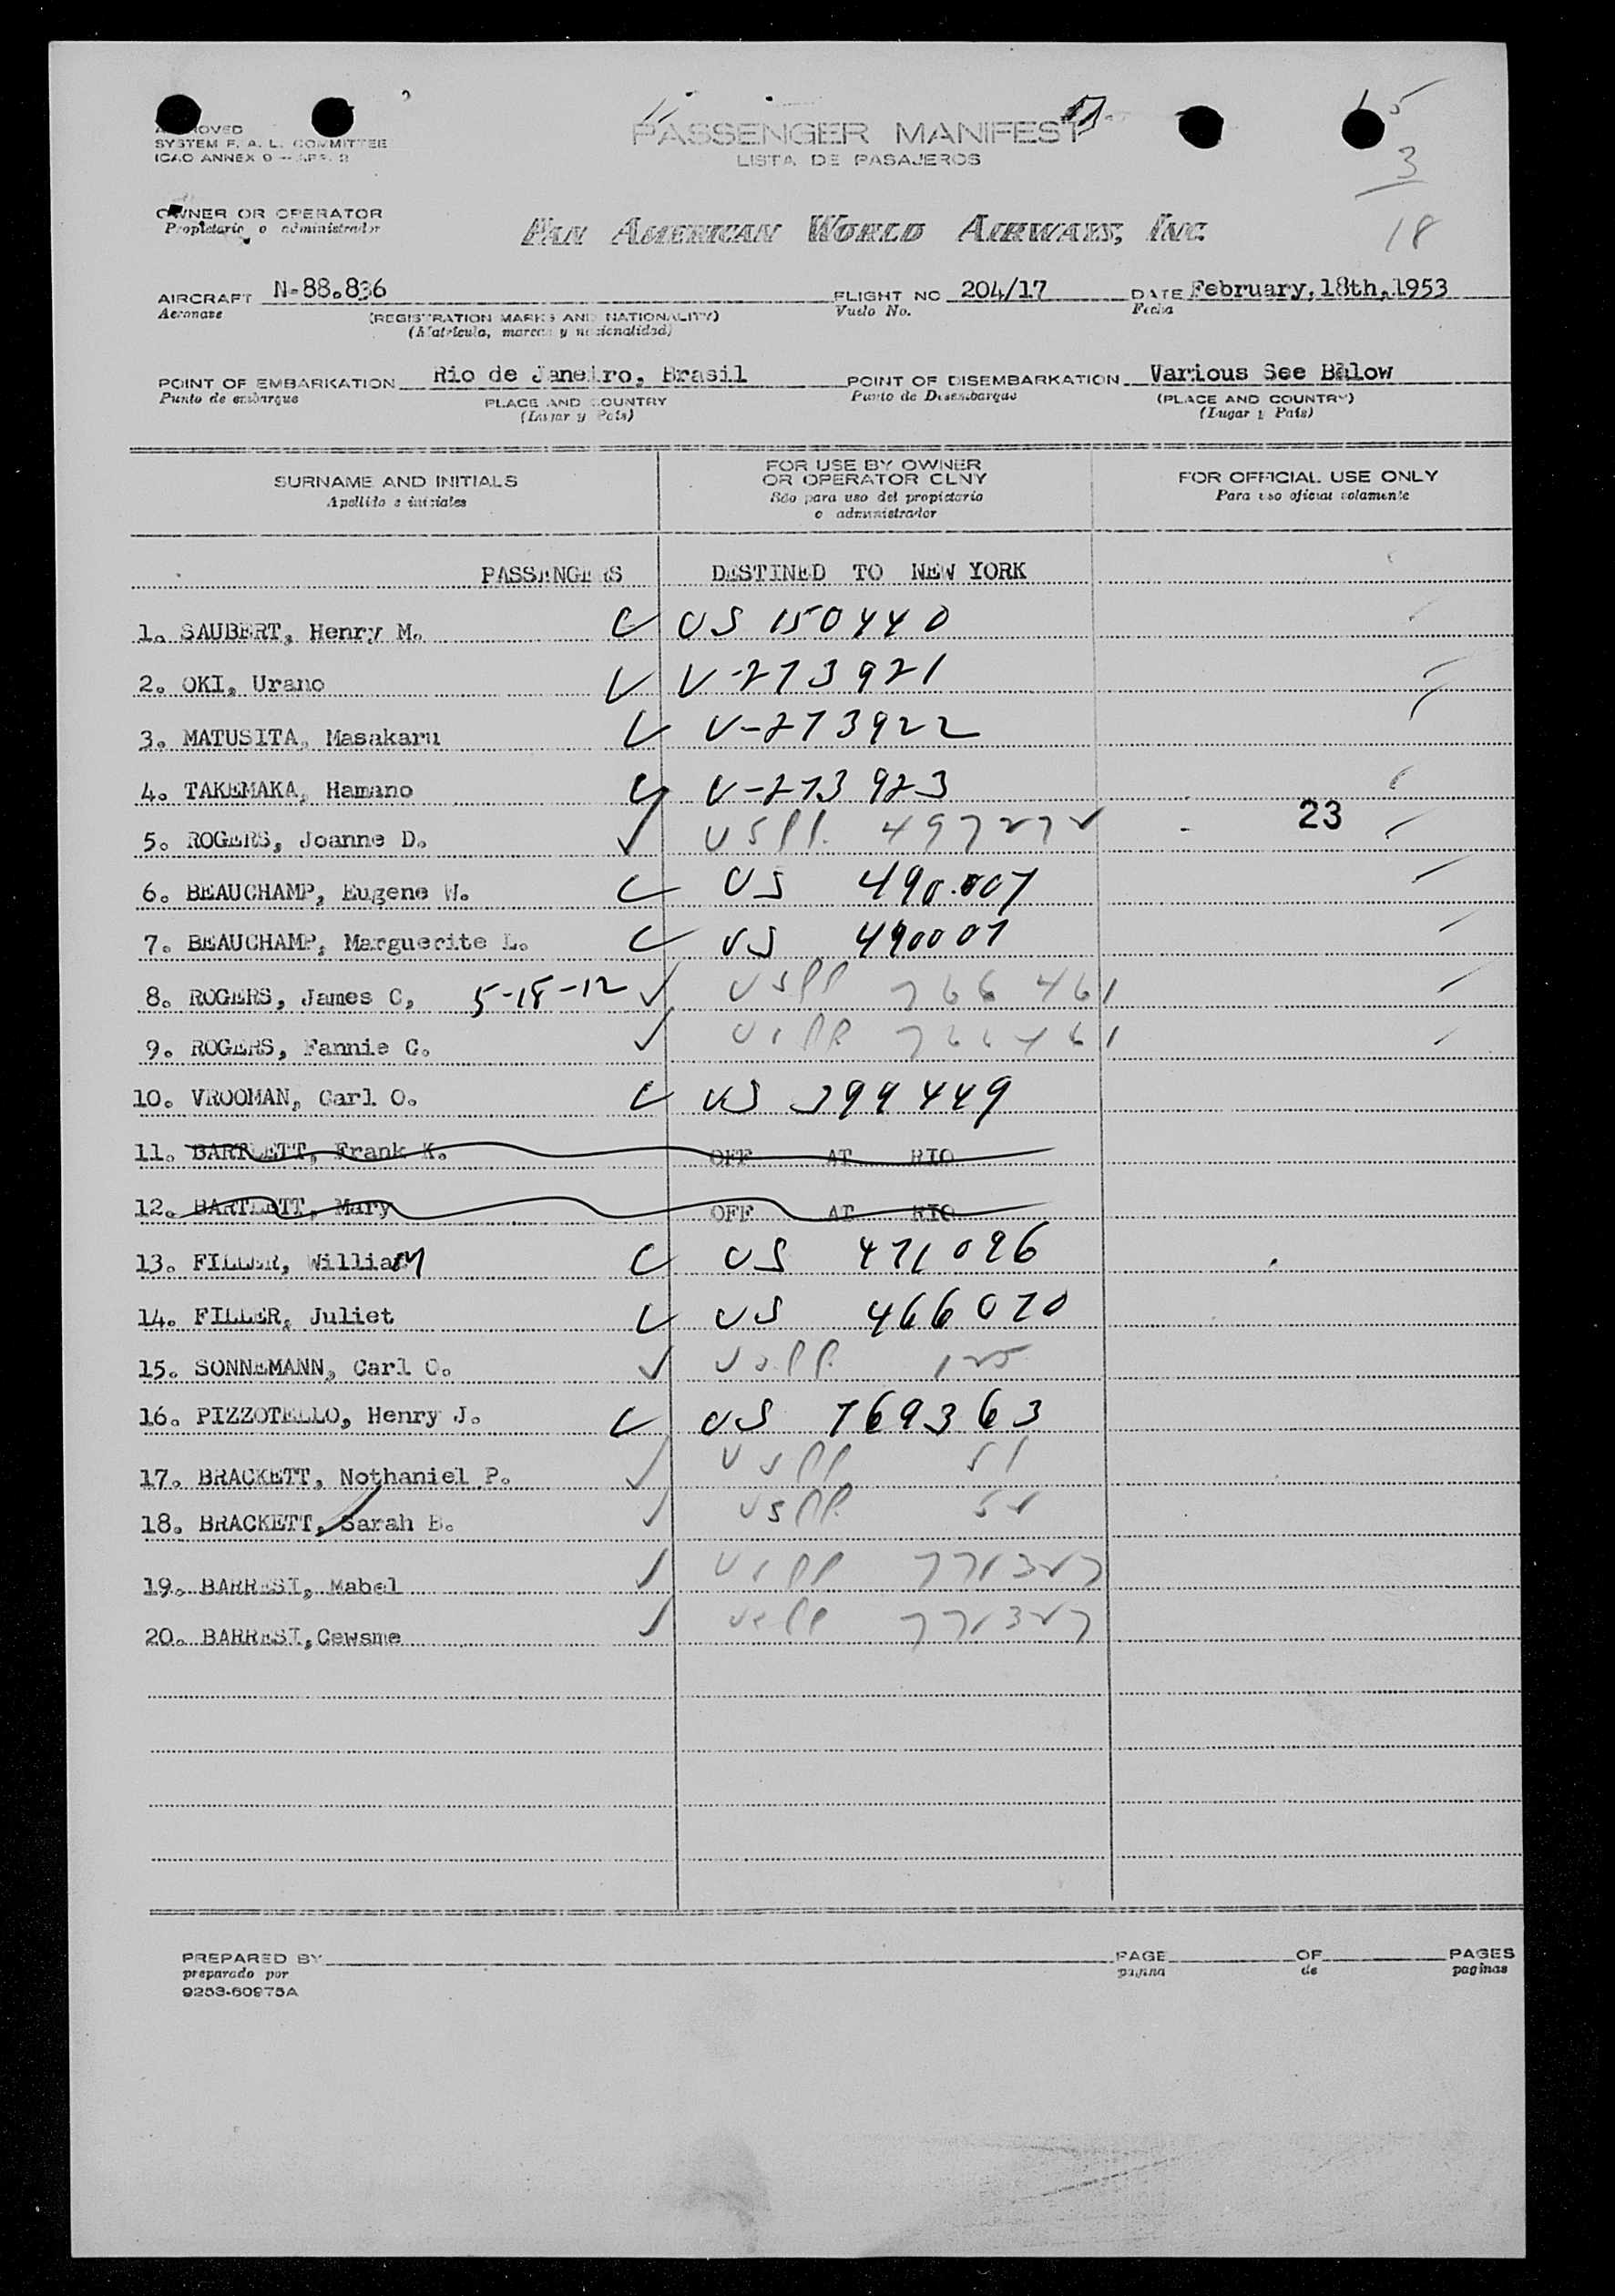 APPROVED
SYSTEM F. A. L. COMMITTEE
ICAO ANNEX 9 — APP. 2
PASSENGER MANIFEST
LISTA DE PASAJEROS
15
3
18
OWNER OR OPERATOR
Propietario o administrador
PAN AMERICAN WORLD AIRWAYS, INC.
AIRCRAFT N-88.836 FLIGHT NO 204/17 DATE February, 18th, 1953
Aeronave (REGISTRATION MARKS AND NATIONALITY) Vuelo No. Fecha
(Matricula, marcas y nacionalidad)
POINT OF EMBARKATION Rio de Janeiro, Brasil POINT OF DISEMBARKATION Various See Bålow
Punto de embarque PLACE AND COUNTRY Punto de Desembarque (PLACE AND COUNTRY)
(Lugar y País) (Lugar y País)
SURNAME AND INITIALS
Apellido e iniciales
FOR USE BY OWNER
OR OPERATOR ONLY
Sólo para uso del propietario
o administrador
FOR OFFICIAL USE ONLY
Para uso oficial solamente
PASSENGERS DESTINED TO NEW YORK
1. SAUBERT, Henry M. US 150440
2. OKI, Urano V-273921
3. MATUSITA, Masakaru V-273922
4. TAKEMAKA, Hamano V-273923
23
5. ROGERS, Joanne D. USPP. 497272
6. BEAUCHAMP, Eugene W. US 490007
7. BEAUCHAMP, Marguerite L. US 490007
8. ROGERS, James C, 5-18-12 USPP 766461
9. ROGERS, Fannie G. USPP 766461
10. VROOMAN, Carl O. US 399449
11. BARTLETT, Frank K. OFF AT RIO
12. BARTLETT, Mary OFF AT RIO
13. FILLER, William US 471096
14. FILLER, Juliet US 466070
15. SONNEMANN, Carl O. USPP. 125
16. PIZZOTELLO, Henry J. US 769363
17. BRACKETT, Nothaniel P. USPP 51
18. BRACKETT, Sarah B. USPP. 52
19. BARRESI, Mabel USPP 771327
20. BARRESI, Cewsme USPP 771327
PREPARED BY PAGE OF PAGES
preparado por pagina de paginas
9253-60975A